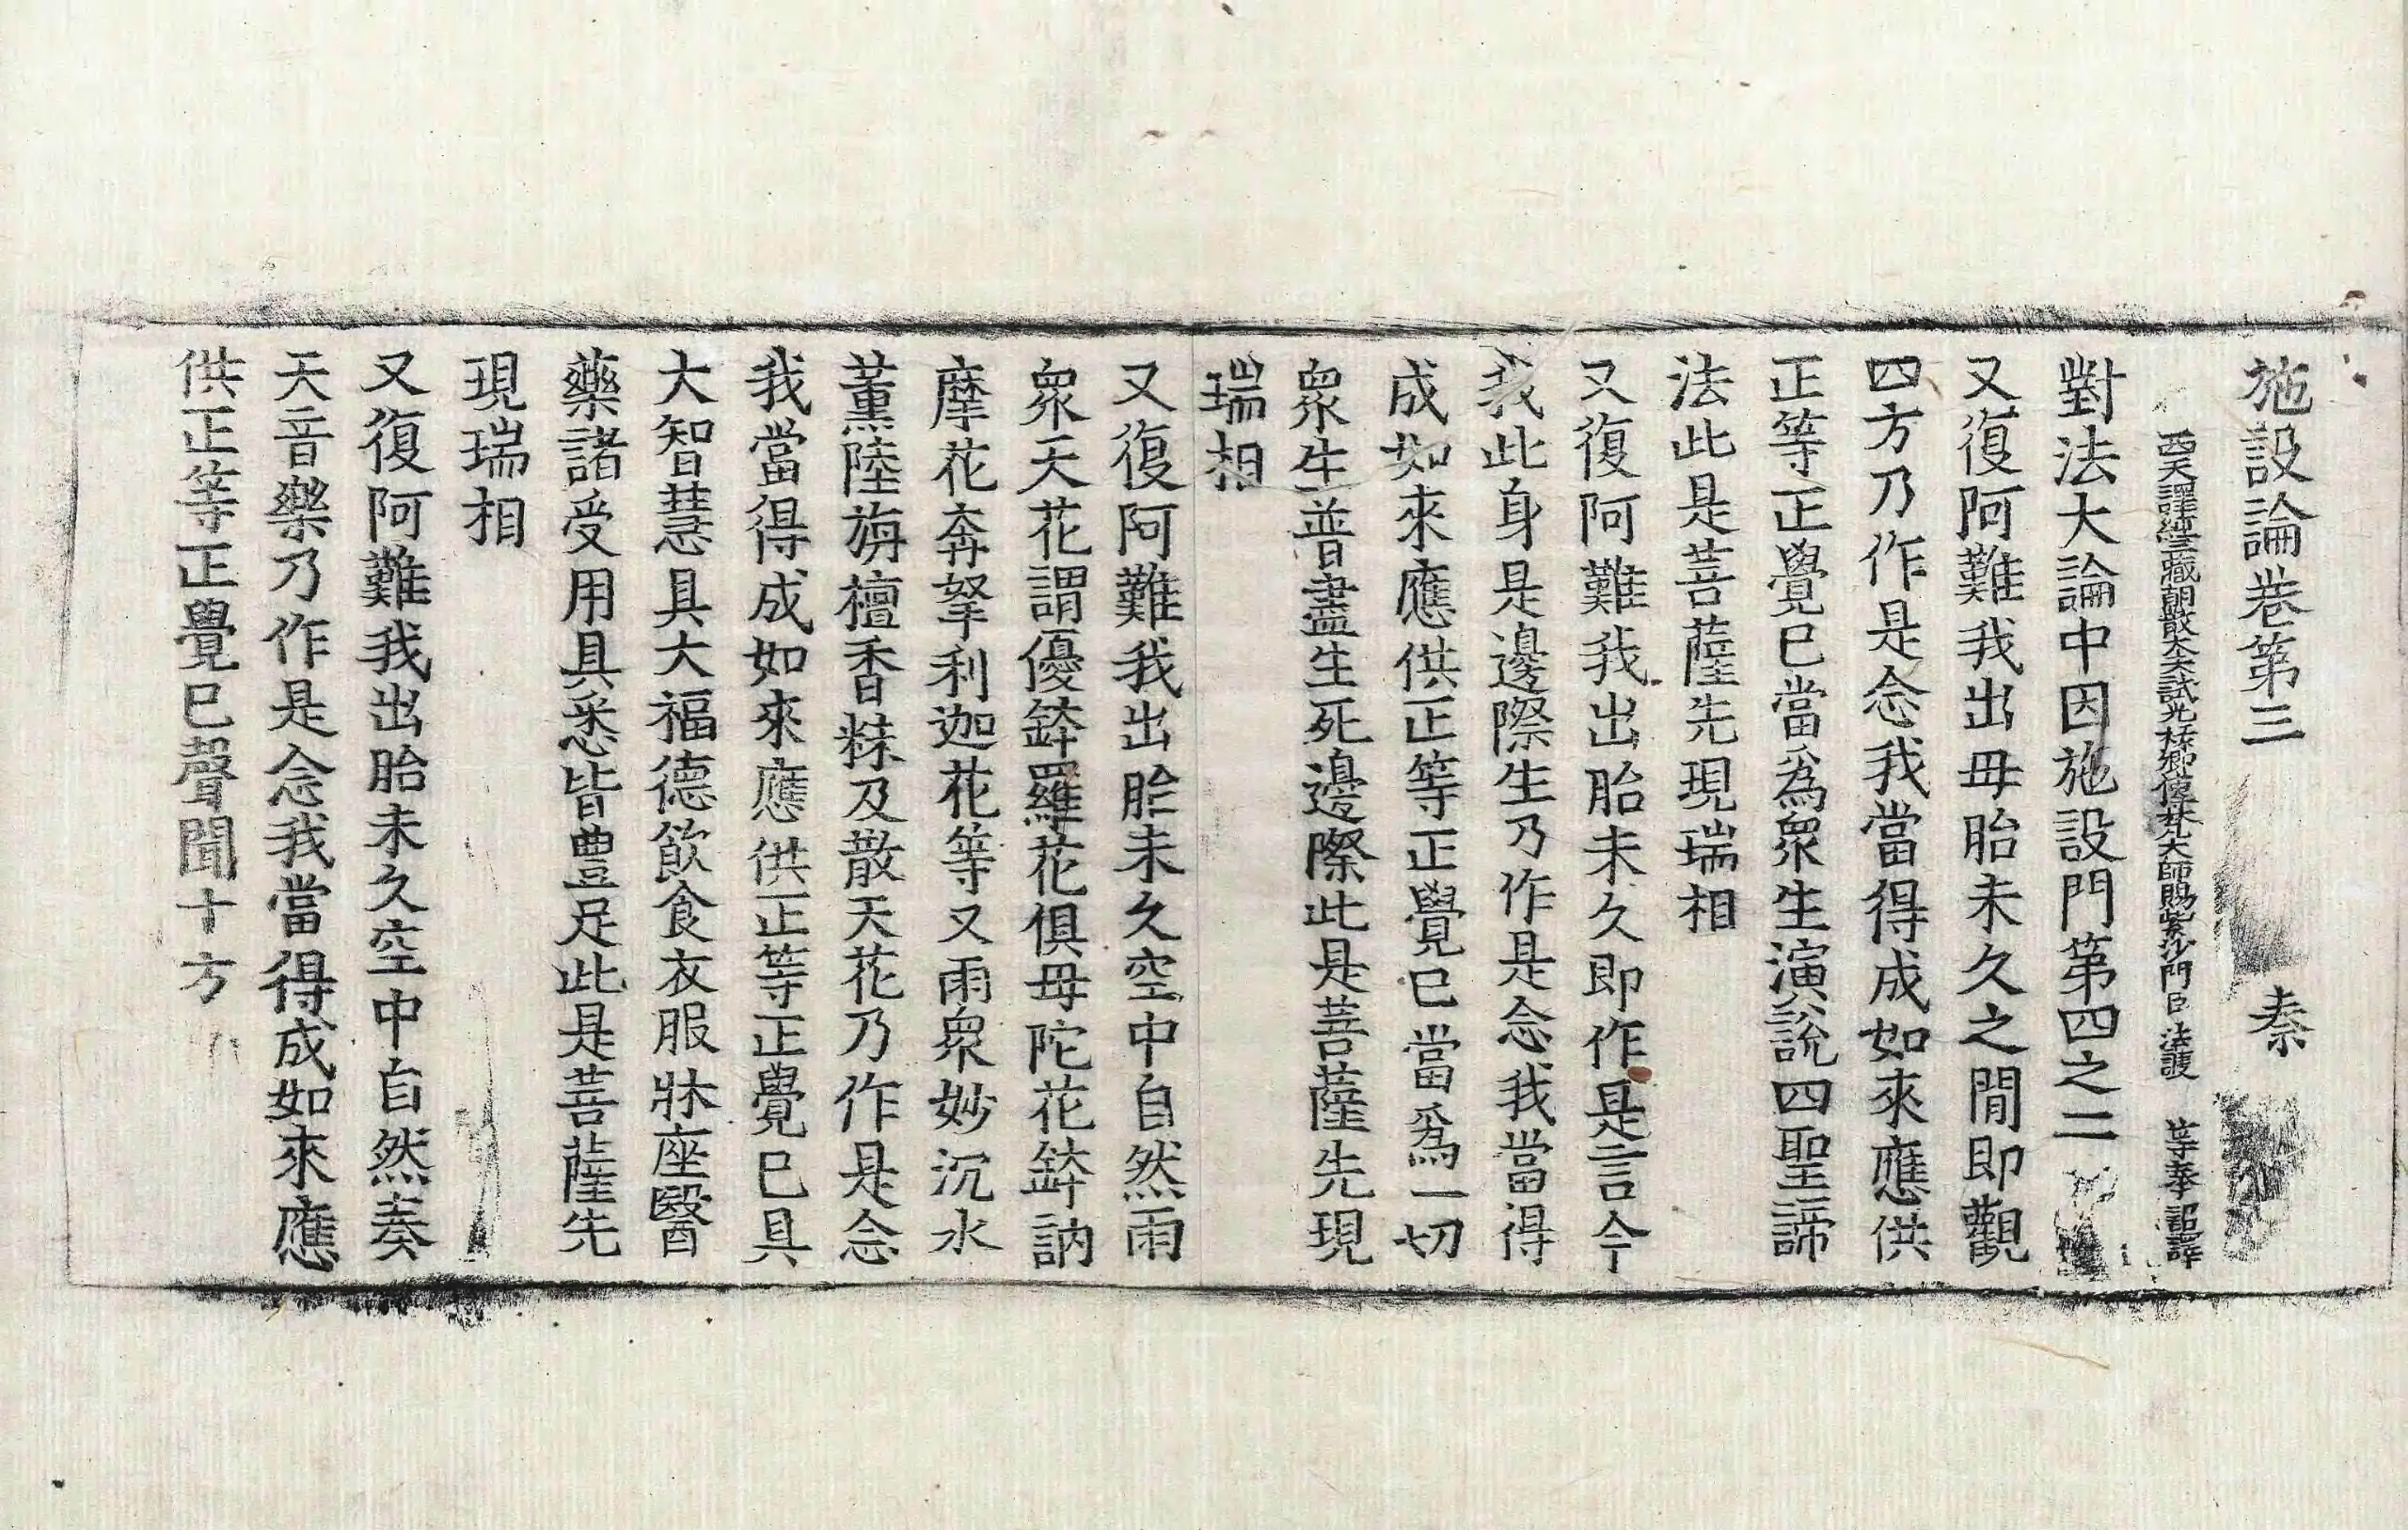 施設論卷第三　秦
西天譯經三藏朝散大夫試光祿卿傳梵大師賜紫沙門臣法護等奉詔譯
對法大論中因施設門第四之二
又復阿難我出母胎未久之間即觀
四方乃作是念我當得成如來應供
正等正覺已當爲衆生演說四聖諦
法此是菩薩先現瑞相
又復阿難我出胎未久即作是言今
我此身是邊際生乃作是念我當得
成如來應供正等正覺已當爲一切
衆生普盡生死邊際此是菩薩先現
瑞相
又復阿難我出胎未久空中自然雨
衆天花謂優鉢羅花俱母陀花鉢訥
摩花奔拏利迦花等又雨衆妙沉水
薰陸旃檀香粖及散天花乃作是念
我當得成如來應供正等正覺已具
大智慧具大福德飲食衣服牀座醫
藥諸受用具悉皆豐足此是菩薩先
現瑞相
又復阿難我出胎未久空中自然奏
天音樂乃作是念我當得成如來應
供正等正覺已聲聞十方